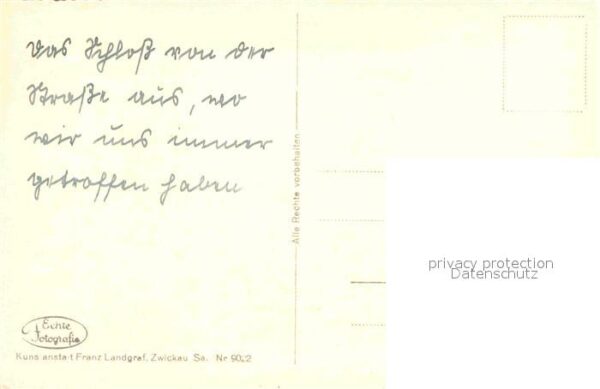 das Schloß von der
Straße aus, wo
wir uns immer
getroffen haben
Alle Rechte vorbehalten
privacy protection
Datenschutz
Echte
Fotografie
Kunstanstalt Franz Landgraf, Zwickau Sa. Nr 9022